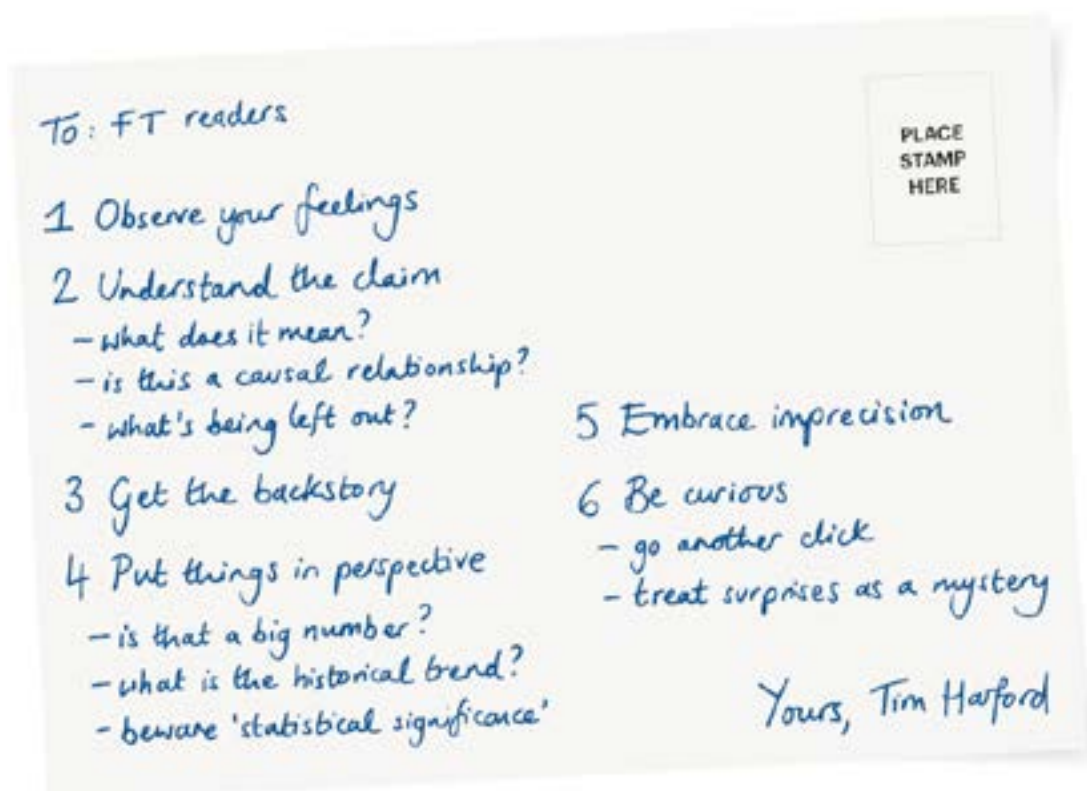 To: FT readers
1 Observe your feelings
2 Understand the claim
- what does it mean?
- is this a causal relationship?
- what's being left out?
3 Get the backstory
4 Put things in perspective
- is that a big number?
- what is the historical trend?
- beware 'statistical significance'
PLACE
STAMP
HERE
5 Embrace imprecision
6 Be curious
- go another click
- treat surprises as a mystery
Yours, Tim Harford